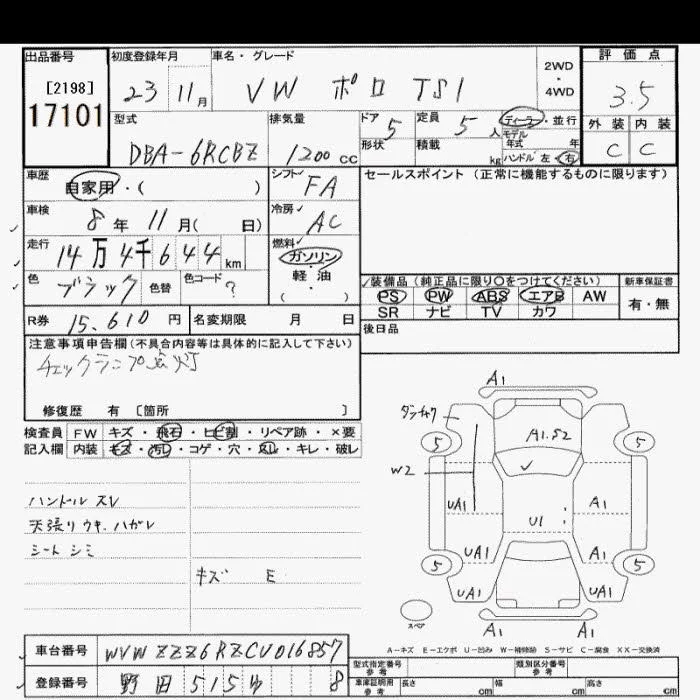 出品番号 初度登録年月 車名・グレード 評価点
[2198] 23 11月 VW ポロ TSI 2WD・4WD 3.5
17101
型式 排気量 ドア 定員 ディーラー・並行 外装 内装
DBA-6RCBZ 1200cc 5 5人 モデル年式 年 C C
形状 積載 kg ハンドル 左・右
車歴 シフト セールスポイント(正常に機能するものに限ります)
自家用・( ) FA
車検 冷房
8年 11月( 日) AC
走行 燃料
14万4千644km ガソリン
軽油
( )
色 ブラック 色替 色コード ?
装備品(純正品に限り○をつけてください) 新車保証書
PS PW ABS エアB AW 有・無
SR ナビ TV カワ
R券 15,610円 名変期限 月 日
後日品
注意事項申告欄(不具合内容等は具体的に記入して下さい)
チェックランプ点灯
修復歴 有 [箇所 ]
検査員 FW キズ・飛石・ヒビ割・リペア跡・×要
記入欄 内装 キズ・汚レ・コゲ・穴・欠し・キレ・破レ
ハンドル スレ
天張り ウキ、ハガレ
シート シミ
キズ E
A1
ダンチャク
A1.S2
5 5
W2
UA1 A1
U1
UA1 A1
5 5
UA1 UA1
スペア
A1 A1
A-キズ E-エクボ U-凹み W-補修跡 S-サビ C-腐食 XX-交換済
車台番号 WVWZZZ6RZCU016857
型式指定番号 参考 類別区分番号 参考
登録番号 野田 515 ゆ 8
車庫証明用 参考 長さ cm 幅 cm 高さ cm